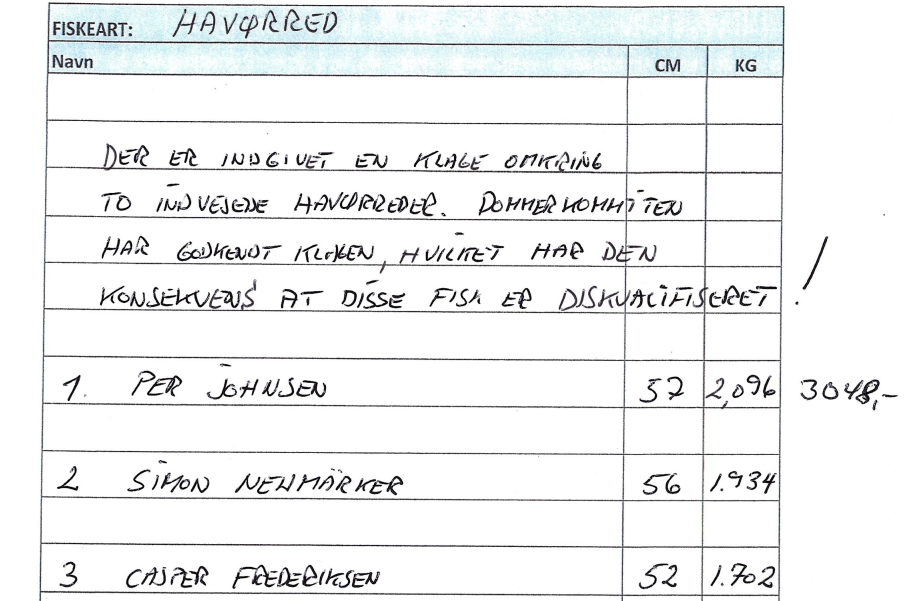 FISKEART: HAVØRRED
Navn CM KG
DER ER INDGIVET EN KLAGE OMKRING
TO INDVEJEDE HAVØRREDER. DOMMERKOMMITTEN
HAR GODKENDT KLAGEN, HVILKET HAR DEN
KONSEKVENS AT DISSE FISK ER DISKVALIFISERET !
1. PER JOHNSEN 57 2,096 3048,-
2 SIMON NEUMÄRKER 56 1.934
3 CASPER FREDERIKSEN 52 1.702